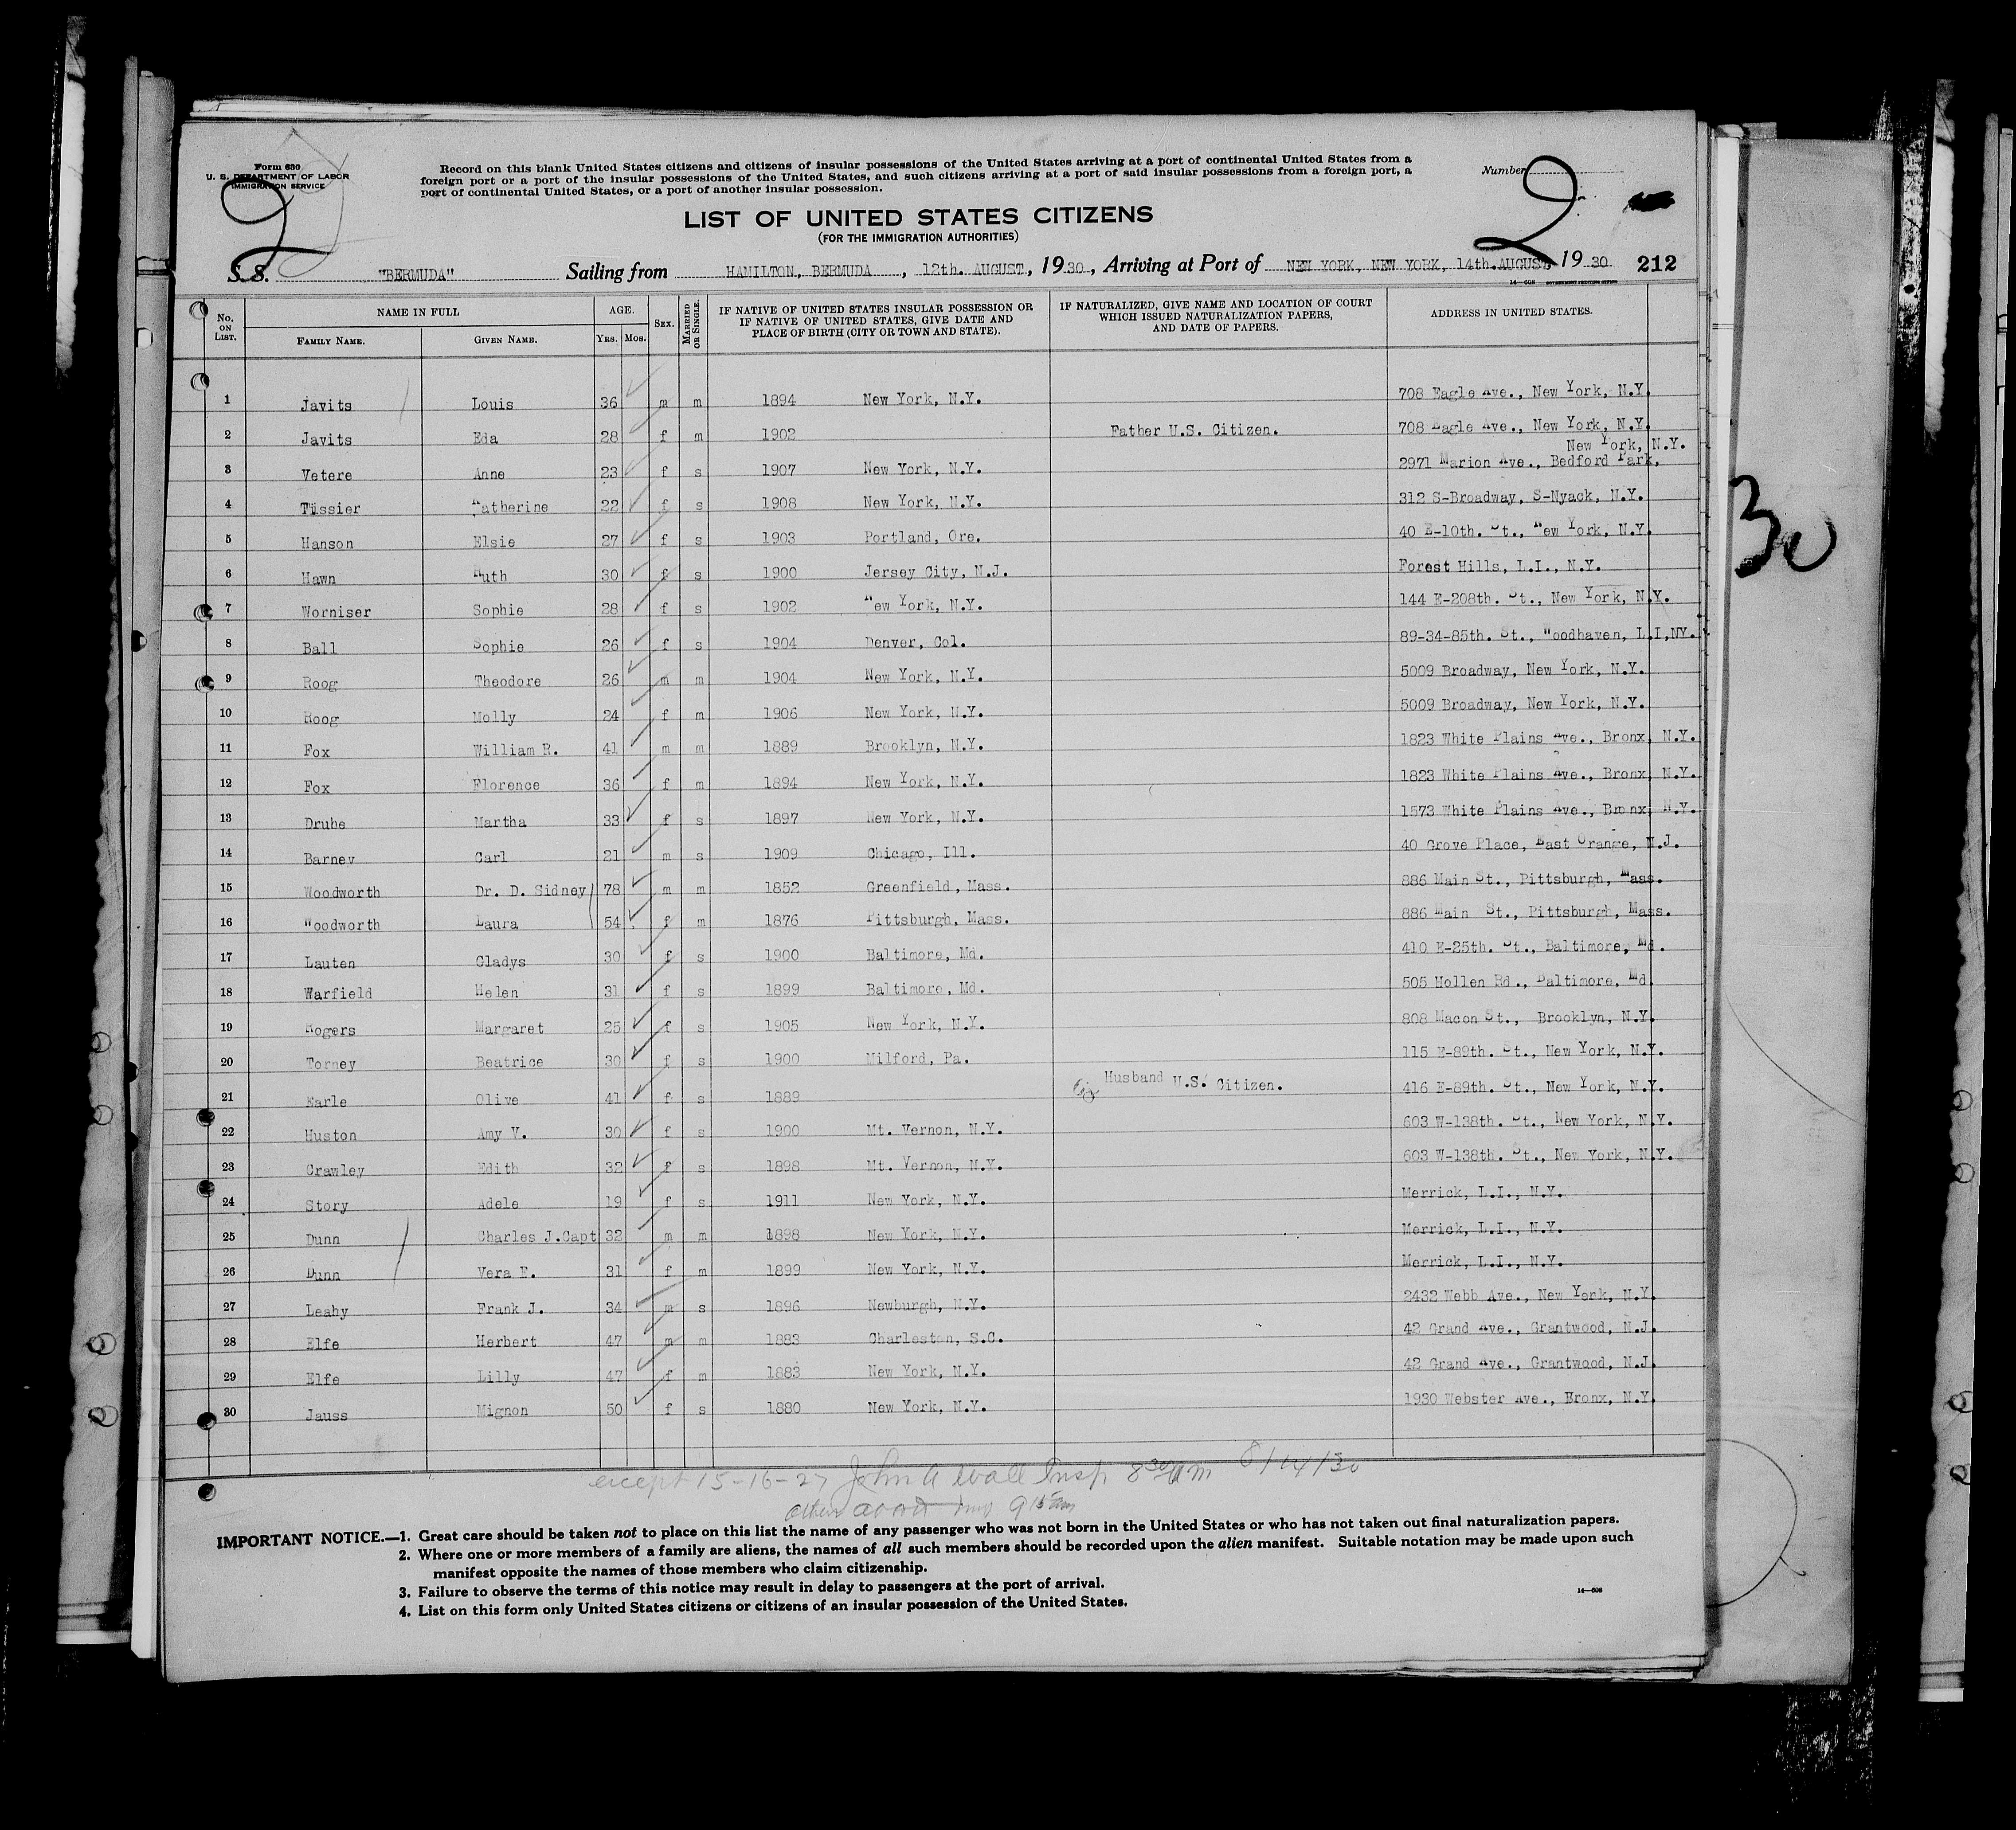 Form 630
U. S. DEPARTMENT OF LABOR
IMMIGRATION SERVICE
2
Record on this blank United States citizens and citizens of insular possessions of the United States arriving at a port of continental United States from a
foreign port or a port of the insular possessions of the United States, and such citizens arriving at a port of said insular possessions from a foreign port, a
port of continental United States, or a port of another insular possession.
Number 2
LIST OF UNITED STATES CITIZENS
(FOR THE IMMIGRATION AUTHORITIES)
S.S. "BERMUDA" Sailing from HAMILTON, BERMUDA, 12th. AUGUST, 1930, Arriving at Port of NEW YORK, NEW YORK, 14th. AUGUST, 1930 212
14—608 GOVERNMENT PRINTING OFFICE
No. ON LIST. NAME IN FULL FAMILY NAME. GIVEN NAME. AGE. YRS. MOS. SEX. MARRIED OR SINGLE. IF NATIVE OF UNITED STATES INSULAR POSSESSION OR IF NATIVE OF UNITED STATES, GIVE DATE AND PLACE OF BIRTH (CITY OR TOWN AND STATE). IF NATURALIZED, GIVE NAME AND LOCATION OF COURT WHICH ISSUED NATURALIZATION PAPERS, AND DATE OF PAPERS. ADDRESS IN UNITED STATES.
1 Javits Louis 36 m m 1894 New York, N.Y. 708 Eagle Ave., New York, N.Y.
2 Javits Eda 28 f m 1902 Father U.S. Citizen. 708 Eagle Ave., New York, N.Y.
New York, N.Y.
3 Vetere Anne 23 f s 1907 New York, N.Y. 2971 Marion Ave., Bedford Park,
4 Tissier Katherine 22 f s 1908 New York, N.Y. 312 S-Broadway, S-Nyack, N.Y.
5 Hanson Elsie 27 f s 1903 Portland, Ore. 40 E-10th. St., New York, N.Y.
6 Hawn Ruth 30 f s 1900 Jersey City, N.J. Forest Hills, L.I., N.Y.
7 Worniser Sophie 28 f s 1902 New York, N.Y. 144 E-208th. St., New York, N.Y.
8 Ball Sophie 26 f s 1904 Denver, Col. 89-34-85th. St., Woodhaven, L.I,NY.
9 Roog Theodore 26 m m 1904 New York, N.Y. 5009 Broadway, New York, N.Y.
10 Roog Molly 24 f m 1906 New York, N.Y. 5009 Broadway, New York, N.Y.
11 Fox William R. 41 m m 1889 Brooklyn, N.Y. 1823 White Plains Ave., Bronx, N.Y.
12 Fox Florence 36 f m 1894 New York, N.Y. 1823 White Plains Ave., Bronx, N.Y.
13 Drube Martha 33 f s 1897 New York, N.Y. 1573 White Plains Ave., Bronx, N.Y.
14 Barney Carl 21 m s 1909 Chicago, Ill. 40 Grove Place, East Orange, N.J.
15 Woodworth Dr. D. Sidney 78 m m 1852 Greenfield, Mass. 886 Main St., Pittsburgh, Mass.
16 Woodworth Laura 54 f m 1876 Pittsburgh, Mass. 886 Main St., Pittsburgh, Mass.
17 Lauten Gladys 30 f s 1900 Baltimore, Md. 410 E-25th. St., Baltimore, Md.
18 Warfield Helen 31 f s 1899 Baltimore, Md. 505 Hollen Rd., Baltimore, Md.
19 Rogers Margaret 25 f s 1905 New York, N.Y. 808 Macon St., Brooklyn, N.Y.
20 Torney Beatrice 30 f s 1900 Milford, Pa. 115 E-89th. St., New York, N.Y.
21 Earle Olive 41 f s 1889 Husband U.S. Citizen. 416 E-89th. St., New York, N.Y.
22 Huston Amy V. 30 f s 1900 Mt. Vernon, N.Y. 603 W-138th. St., New York, N.Y.
23 Crawley Edith 32 f s 1898 Mt. Vernon, N.Y. 603 W-138th. St., New York, N.Y.
24 Story Adele 19 f s 1911 New York, N.Y. Merrick, L.I., N.Y.
25 Dunn Charles J.Capt 32 m m 1898 New York, N.Y. Merrick, L.I., N.Y.
26 Dunn Vera E. 31 f m 1899 New York, N.Y. Merrick, L.I., N.Y.
27 Leahy Frank J. 34 m s 1896 Newburgh, N.Y. 2432 Webb Ave., New York, N.Y.
28 Elfe Herbert 47 m m 1883 Charleston, S.C. 42 Grand Ave., Grantwood, N.J.
29 Elfe Lilly 47 f m 1883 New York, N.Y. 42 Grand Ave., Grantwood, N.J.
30 Jauss Mignon 50 f s 1880 New York, N.Y. 1930 Webster Ave., Bronx, N.Y.
except 15-16-27 John A Wall Insp 8 30 AM 8/14/30
others Insp 9 15 am
IMPORTANT NOTICE.—1. Great care should be taken not to place on this list the name of any passenger who was not born in the United States or who has not taken out final naturalization papers.
2. Where one or more members of a family are aliens, the names of all such members should be recorded upon the alien manifest. Suitable notation may be made upon such
manifest opposite the names of those members who claim citizenship.
3. Failure to observe the terms of this notice may result in delay to passengers at the port of arrival.
4. List on this form only United States citizens or citizens of an insular possession of the United States.
14—608
30